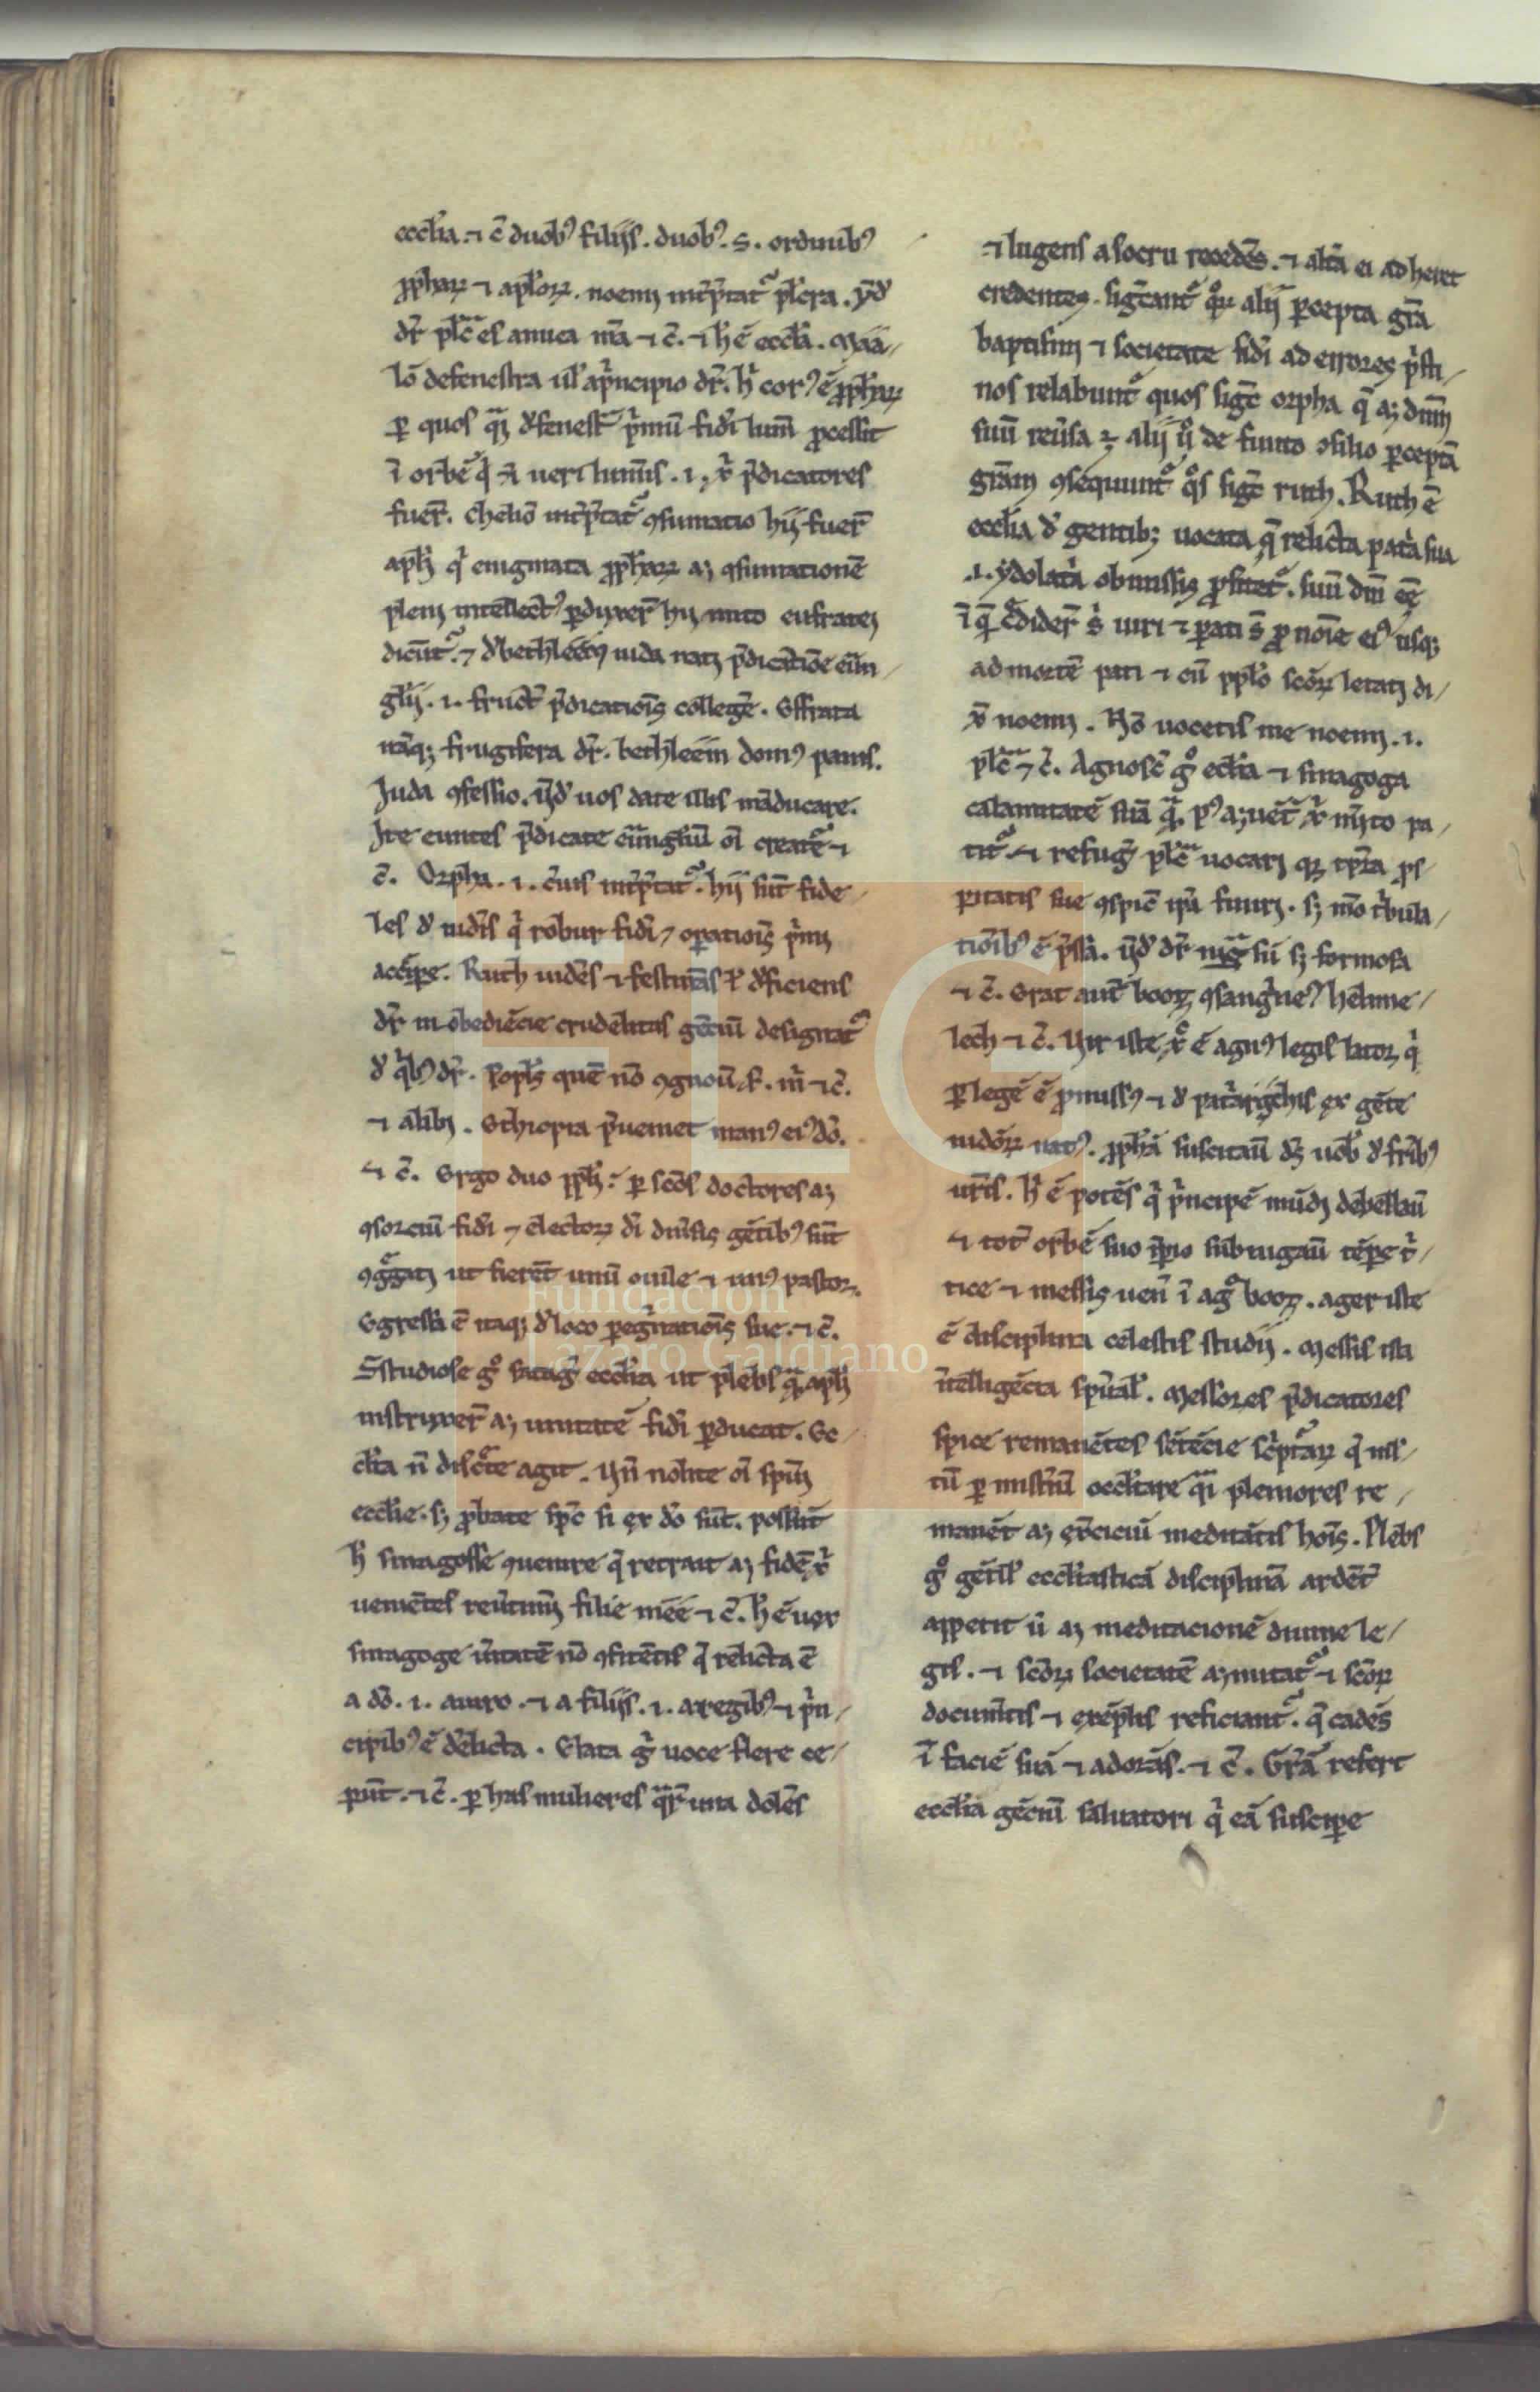 eccl̄ia. ⁊ c̄ duob᷒ filijs. duob᷒. s. ordinib᷒
ꝓph̄aꝝ ⁊ apl̄oꝝ. noemȷ int̄p̄tat᷒ pl̄cra. vn̄
dr̄ pl̄c̄ es amica m̄a ⁊ c̄. ⁊ h̄ ē eccl̄a. Maa/
lō defenestra ul̓ ap̓ncipio dr̄. h̓ cor᷒ ē ꝓph̄aꝝ
ꝑ quos q̄ȝ d̓ fenest̓ p̓mū fid̓i lum̄ ꝓcessit
ī orbē q̓ ⁊ ueri lum̄is. i. x̓ p̄dicatores
fuer̄. Chelio int̄p̄tat᷒ ꝯsumatio hij fuer̄
apl̄i q̓ enigmata ꝓph̄aꝝ aȝ ꝯsumationē
pleni intellect᷒ ꝑduxer̄ hij mito eufrateȷ
dicūt᷒. ⁊ d̓ bethleem iuda natȷ p̄dicatiōe eūn/
glij. i. fruct̄ p̄dicationis colleg̓e. Effrata
nāqȝ frugifera dr̄. bethleem dom᷒ panis.
Juda ꝯfessio. vn̄ uos date illis māducare.
Ite euntes p̄dicate eūngliū oī creat᷒e ⁊
c̄. Orpha. i. c̓uis int̄p̄tat᷒. hij sūt fide/
les d̓ iudeis q̓ robur fid̓i ⁊ oꝑationis p̓mi
accipe. Ruth uidēs ⁊ festinās ul̓ d̓ficiens
dr̄ in obediēcie crudelitas gētiū designat᷒
d̓ q̓b᷒ dr̄. Popl̄s quē nō ꝯgnoui ẜ. m̓ ⁊ c̄.
⁊ alibi. Ethiopia p̓ueniet man᷒ ei᷒ dō.
⁊ c̄. Ergo duo ppl̄i ꝑ scōs doctores aȝ
ꝯsorciū fid̓i ⁊ electoꝝ d̓i diu̓sis gētib᷒ sūt
ꝯg̓gati ut fierēt unū ouile ⁊ un᷒ pastor.
Egressa ē itaqȝ d̓ loco ꝑeg̓nationis sue. ⁊ c̄.
Studiose g̊ satag̓ eccl̄ia ut plebs q̄ apl̄i
instruxer̄ aȝ unitatē fid̓i ꝑducat. Ec/
cl̄ia n̄ disc̓te agit. Vn̄ nolite oī spūi
eccl̄ie. sȝ ꝓbate spc̄ si ex dō sūt. possūt
h̓ sinagoge ꝯuenire q̄ retrait aȝ fidē x̓
uenientes reu̓timȷ filie mee ⁊ c̄. h̓ ē uox
sinagoge u̓itatē nō ꝯfitētis q̄ relicta ē
a dō. i. auiro. ⁊ a filijs. i. a regib᷒ ⁊ p̓n/
cipib᷒ ē d̓elicta. Elata g̓ uoce flere ce/
pūt. ⁊ c̄. ꝑ has mulieres q̄ꝝ una dolēs
⁊ lugens a socru recedēs. ⁊ alt̓a ei adheret
credentes. sig̓cant᷒ q̊ꝝ alij ꝑcepta gr̄a
baptismi ⁊ societate fid̓i ad errores p̓sti/
nos relabunt᷒ quos sig̓t orpha q̄ aȝ dm̄
suū reu̓sa ē alij u̓o de finito ꝯsilio ꝑceptā
gr̄am ꝯsequunt᷒ q̊s sig̓t ruth. Ruth ē
eccl̄ia d̓ gentibȝ uocata q̄ relicta pat̓a sua
.i. ydolat̓a obmissis ꝓfitet᷒. suū dm̄ eē
ī q̄ c̓dider̄ s̓ uiri ⁊ ꝑati s̄ ꝓ noīe ei᷒ usqȝ
ad mortē pati ⁊ cū pplo scōꝝ letari di/
x̄ noemȷ. Nō uocetis me noemȷ. i.
pl̄c̄ ⁊ c̄. Agnosc̄ g̊ eccl̄ia ⁊ sinagoga
calamitatē suā q̄ p᷒ aȝuēt̄ x̓ m̓ito pa/
tit᷒ ⁊ refug̓ pl̄c̄ uocari qȝ tp̄ra ꝓs/
ꝑitatis sue ꝯspic̄ irā futurȷ. sȝ mō t̓bula/
tiōib᷒ ē p̄ssa. vn̄ dr̄ nig̓ sū sȝ formosa
⁊ c̄. Erat aut̄ booz ꝯsang̓ne᷒ helime/
lech ⁊ c̄. Vir iste x̊ ē agn᷒ legis lator q̓
ꝑ legē ē ꝓmiss᷒ ⁊ d̓ pat̓archis ex gēte
iudeoꝝ nat᷒. ꝓph̄ā suscitaū dȝ uob̓ d̓ fr̄ib᷒
ur̄is. h̓ ē potēs q̓ p̓ncipē mūdi debellaū
⁊ tot̄ orbē suo īꝑio subiugaū tēpe t̓/
tice ⁊ messis uen̄ ī ag̊ booz. ager iste
ē disciplina celestis studij. Messis ista
ītelligēcia spūal̓. Messores p̄dicatores
spice remanētes sētēcie sc̓pt᷒aꝝ q̄ mis/
tū ꝑ mist̓iū occl̓tare q̄i pleniores re/
manēt aȝ ex̓ciciū meditātis hoīs. Plebs
g̊ gētil̓ eccl̄iasticā disciplinā ardēt̄
appetit ū aȝ meditacionē diuine le/
gis. ⁊ scōꝝ societatē aȝmitat᷒ ⁊ scōꝝ
docum̄tis ⁊ exēplis reficiant᷒. q̄ cadēs
ī faciē suā ⁊ adorās. ⁊ c̄. Gr̄ā refert
eccl̄ia gēciū saluatori q̓ eā suscipe
Fundación
Lázaro Galdiano
FLG